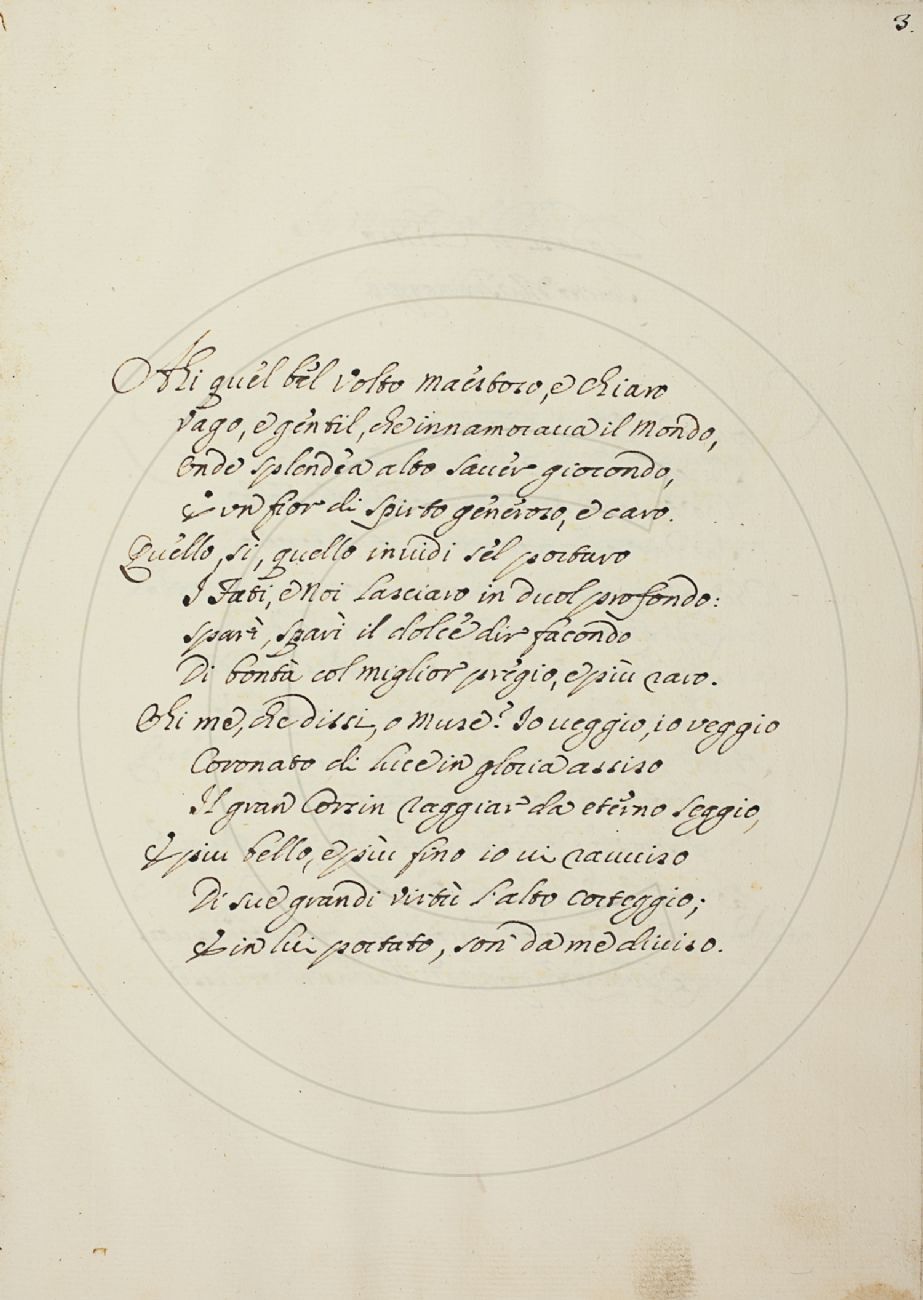 3.
Ahi quel bel volto maestoso, e chiaro
Vago, e gentil, che innamoraua il Mondo,
Onde splendea alto sauer giocondo,
E vn fior di Spirto generoso, e caro.
Quello, sì, quello inuidi sel portaro
I Fati, e Noi lasciaro in duol profondo:
Sparì, sparì il dolce dir facondo
Di bontà col miglior pregio, e più raro.
Ohi me, che dissi, o Muse? Io ueggio, io veggio
Coronato di luce in gloria assiso
Il gran Corsin raggiar da eterno seggio,
E piu bello, e più fino io ui rauuiso
Di sue grandi virtù l'alto corteggio;
E in lui portato, son da me diuiso.